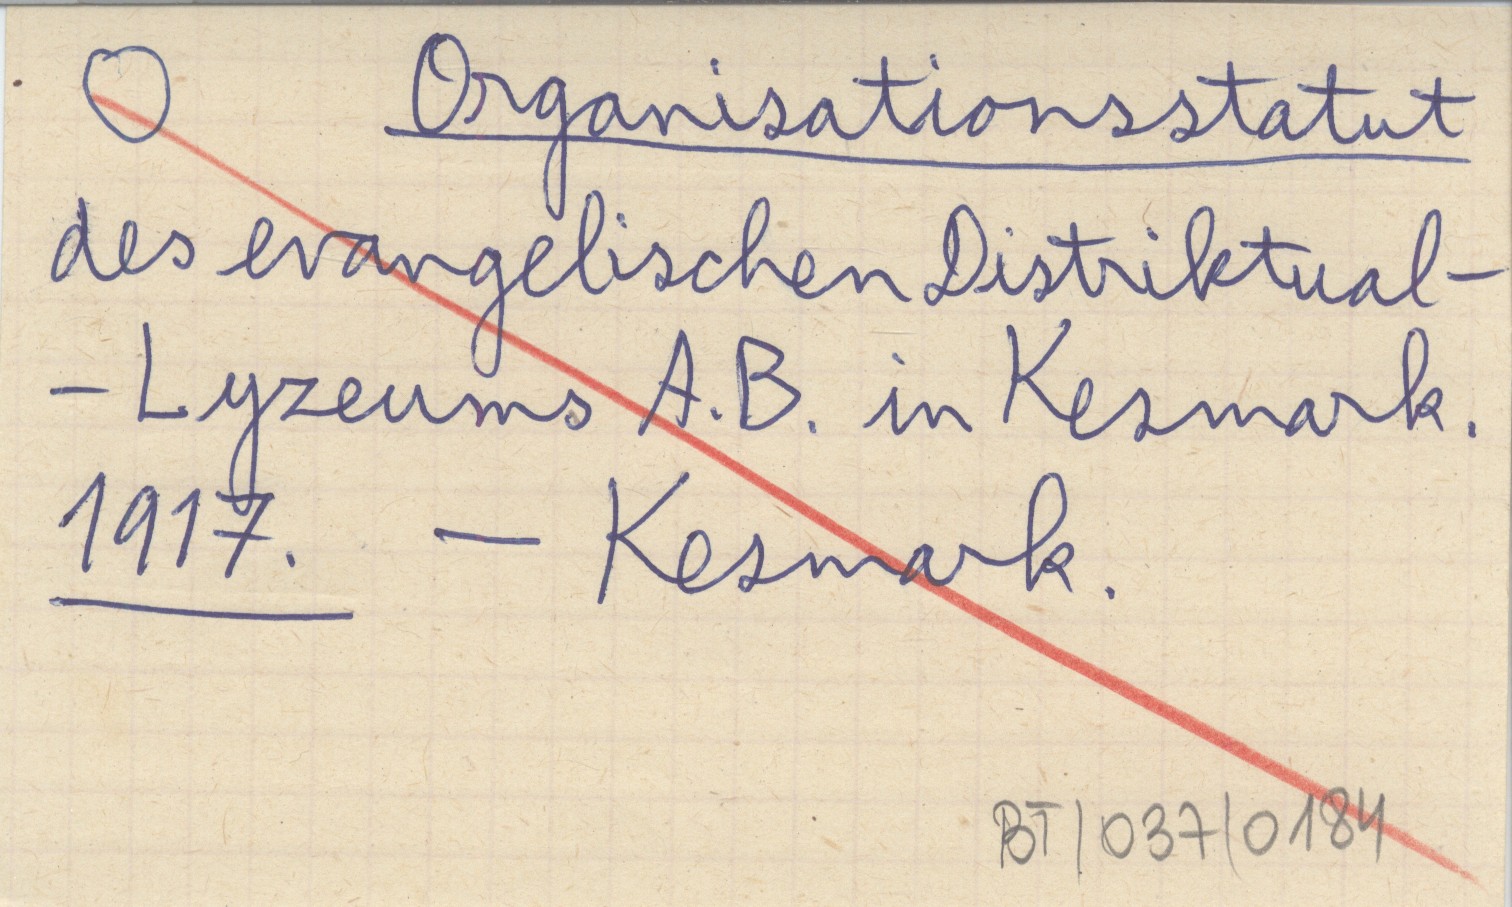 Organisationsstatut
des evangelischen Distriktual-
-Lyzeums A.B. in Kesmark.
1917. — Kesmark.
BT/037/0184